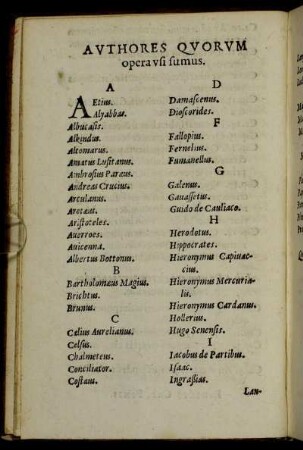 AVTHORES QVORVM
opera vsi sumus.
A
AEtius.
Alyabbas.
Albucasis.
Alkindus.
Altomarus.
Amatus Lusitanus.
Ambrosius Paræus.
Andreas Crucius.
Arculanus.
Aretæus.
Aristoteles.
Auerroes.
Auicenna.
Albertus Bottonus.
B
Bartholomæus Magius.
Brichtus.
Brunus.
C
Cælius Aurelianus.
Celsus.
Chalmeteus.
Conciliator.
Costæus.
D
Damascenus.
Dioscorides.
F
Fallopius.
Fernelius.
Fumanellus.
G
Galenus.
Ganassetus.
Guido de Cauliaco.
H
Herodotus.
Hippocrates.
Hieronymus Capiuac-
cius.
Hieronymus Mercuria-
lis.
Hieronymus Cardanus.
Hollerius.
Hugo Senensis.
I
Iacobus de Partibus.
Isaac.
Ingrassias.
Lan-